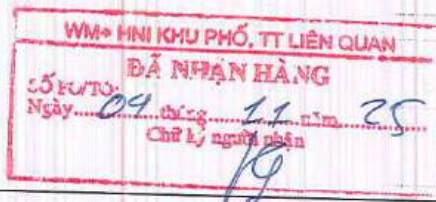 WM+ HNI KHU PHỐ, TT LIÊN QUAN
ĐÃ NHẬN HÀNG
SỐ PO/TO:
Ngày.....04 tháng.....11 năm.....25
Chữ ký người nhận